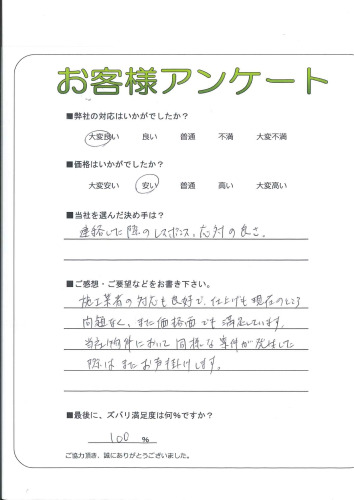 お客様アンケート
■弊社の対応はいかがでしたか？
大変良い 良い 普通 不満 大変不満
■価格はいかがでしたか？
大変安い 安い 普通 高い 大変高い
■当社を選んだ決め手は？
連絡した際のレスポンス、応対の良さ。
■ご感想・ご要望などをお書き下さい。
施工業者の対応も良好で、仕上げも現在のところ
問題なく、また価格面でも満足しています。
当社物件において同様な事件が発生した
際はまたお声掛けします。
■最後に、ズバリ満足度は何%ですか？
100 %
ご協力頂き、誠にありがとうございました。